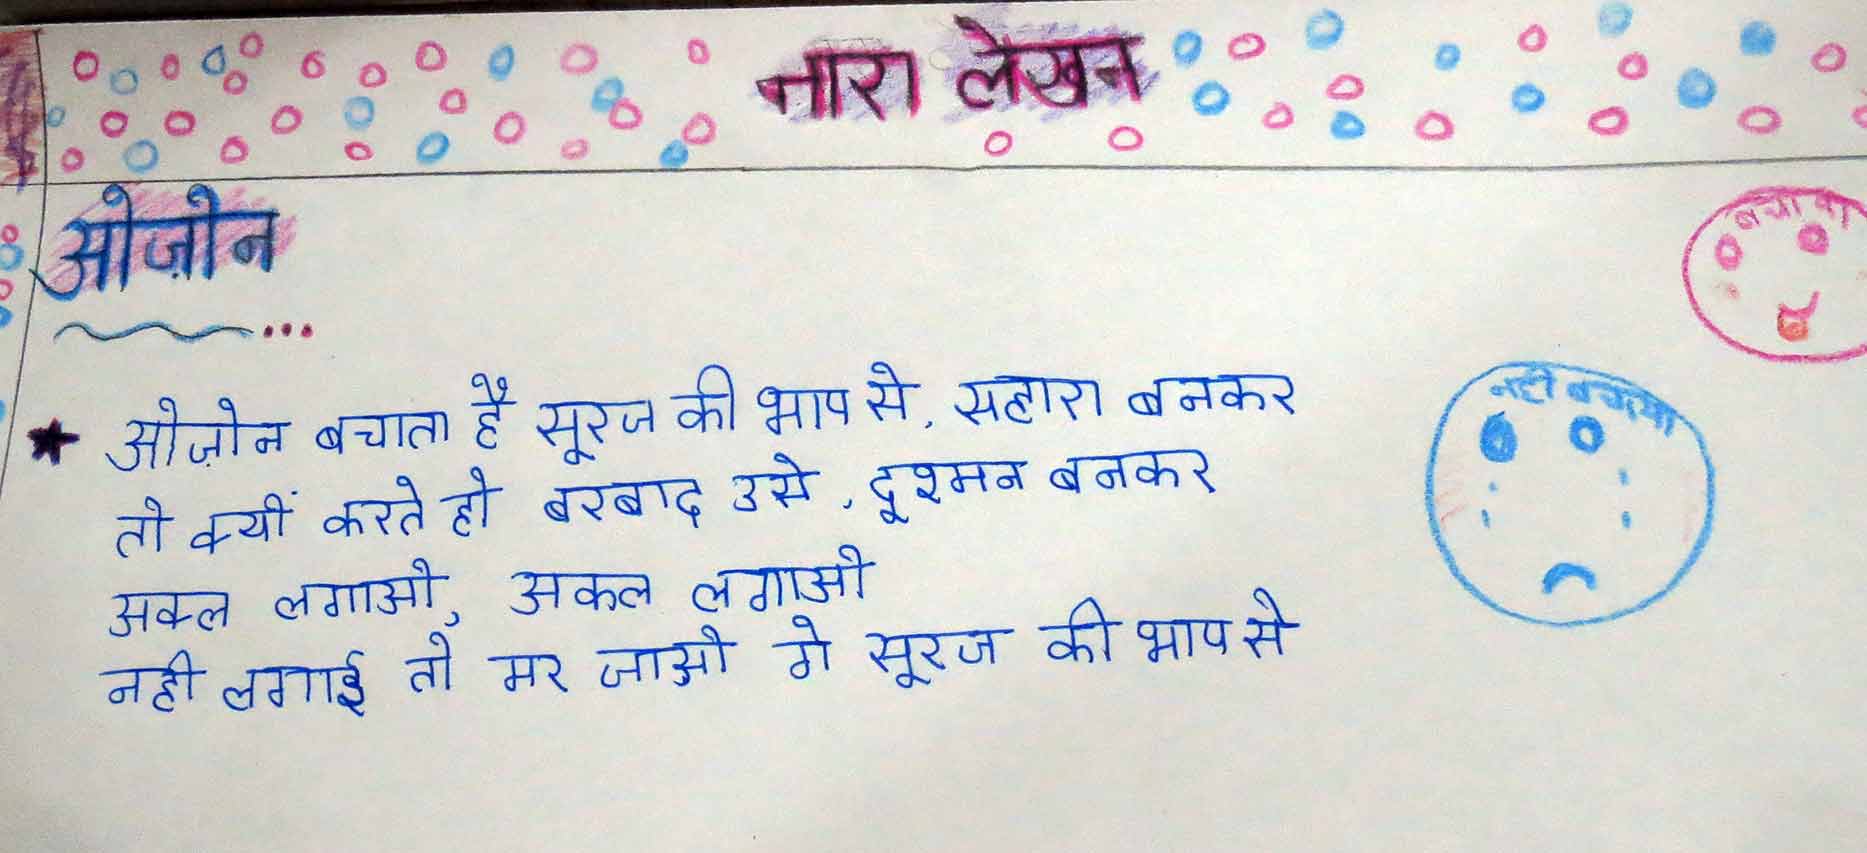 नारा लेखन
ओज़ोन
ओज़ोन बचाता है सूरज की भाप से, सहारा बनकर
तो क्यों करते हो बरबाद उसे, दूश्मन बनकर
अकल लगाओ, अकल लगाओ
नही लगाई तो मर जाओ गे सूरज की भाप से
नही बचाया